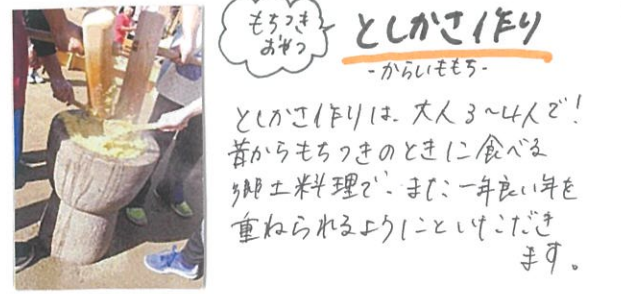 もちつき
おやつ
としかさ作り
-からいももち-
としかさ作りは、大人3～4人で！
昔からもちつきのときに食べる
郷土料理で、また一年良い年を
重ねられるようにといただき
ます。